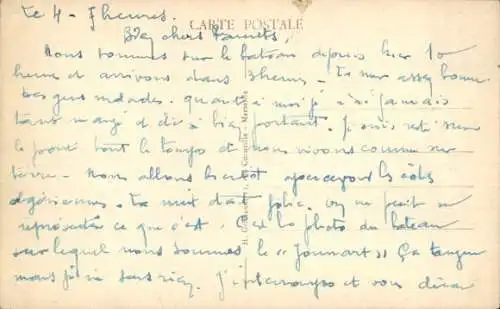 Le 4 - 7 heures.
CARTE POSTALE
Bien chers Parents,
Nous sommes sur le bateau depuis hier 10
heures et arrivons dans 3 heures - La mer assez bonne
des gens malades. quant à moi je n'ai jamais
tant mangé et été si bien portant. Je suis resté sur
le pont tout le temps et nous vivons comme sur
terre - Nous allons bientôt apercevoir les côtes
algériennes. La nuit était jolie. on ne peut se
représenter ce que c'est. C'est la photo du bateau
sur lequel nous sommes le "Jonnart" Ça tangue
mais je n'ai rien. J'interromps et vous dirai
Marseille